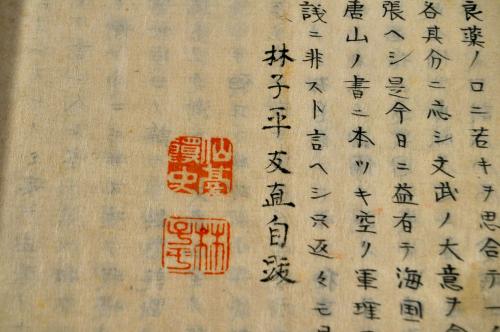 良薬ノ口ニ苦キヲ思合テ
各其分ニ応シ文武ノ大意ヲ
張ヘシ是今日ニ益有テ海国
唐山ノ書ニ本ツキ空ク軍理
談ニ非スト言ヘシ只返々モ
林子平友直自跋
仙臺
史
林
子平